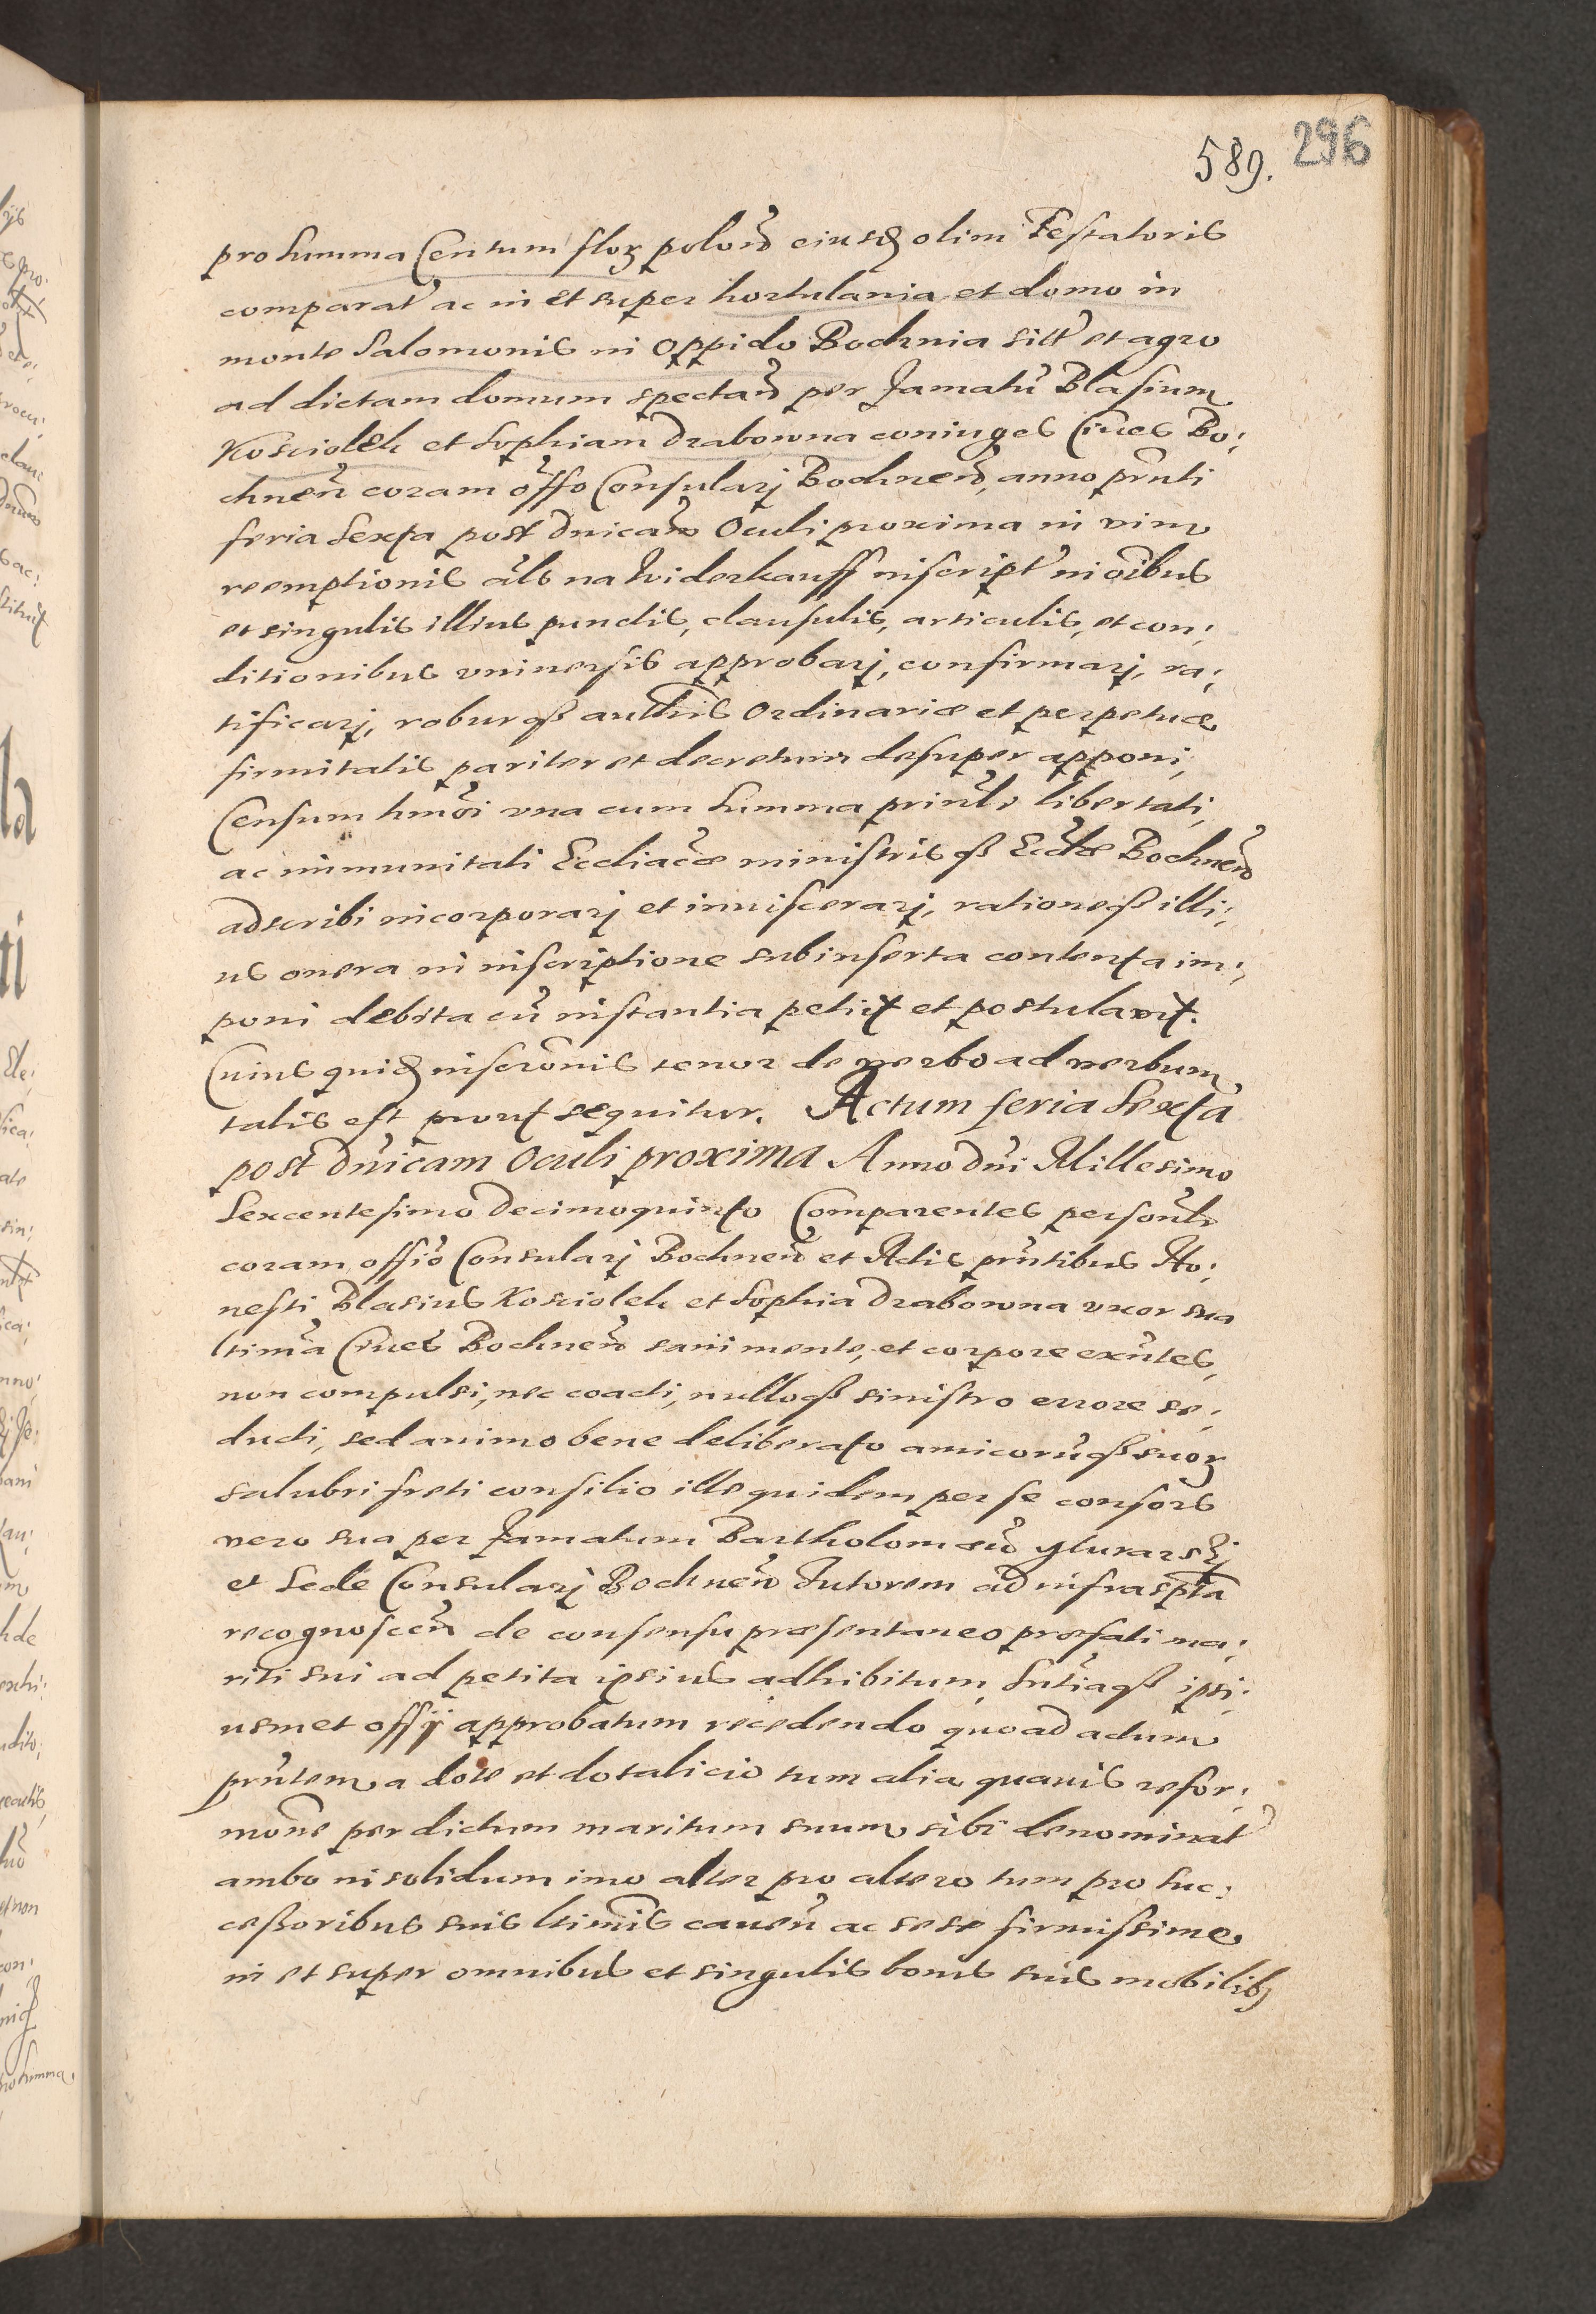 589. 296
pro summa Centum floꝝ polon̄ eiusdꝫ olim Testatoris
comparat̄ ac in et super hortulania et domo in
monte Salomonis in oppido Bochnia sitt̄ et agro
ad dictam domum spectan̄ per famatū Blasium
Kosciolek et Sophiam Drabowna coniuges Ciues Bo:
chnen̄ coram offō Consularj Bochnen̄, anno prn̄ti
feria Sexta post Dnicam̄ Oculi proxima in vim
reemptionis als̄ na Widerkauff inscript̄ in oībus
et singulis illius punctis, clausulis, articulis, et con:
ditionibus vniuersis approbarj, confirmarj, ra:
tificarj, roburqꝫ authtīs Ordinariæ et perpetuæ
firmitatis pariter et decretum desuper apponi,
Censum hmōi vna cum summa prinlī libertati,
ac immunitati Eccliācæ ministrisqꝫ Ecclǣ Bochnen̄
adscribi incorporarj et inuiscerarj, rationeqꝫ illi:
us onera in inscriptione subinserta contenta im:
poni debita cū instantia petiit et postulauit.
Cuius quidꝫ inscrōnis tenor de verbo ad verbum
talis est prout sequitur. Actum feria Sexta
post Dnīcam Oculi proxima Anno Dnī Millesimo
Sexcentesimo Decimoquinto Comparentes personlr̄
coram offiō Consularj Bochnen̄ et Actis prn̄tibus Ho:
nesti Blasius Kosciolek et Sophia Drabowna vxor sua
ltima̅ Ciues Bochnen̄ sani mente, et corpore exn̄tes,
non compulsi, nec coacti, nulloqꝫ sinistro errore se:
ducti, sed animo bene deliberato amicorūqꝫ suoꝝ
salubri freti consilio ille quidem per se consors
vero sua per famatum Bartholomæū
et Sede Consularj Bochnen̄ Tutorem ad infrasptā
recognoscen̄ de consensu præsentaneo præfati ma:
riti sui ad petita ipsius adhibitum, Sntīaqꝫ ipsi:
usmet offij approbatum recedendo quoad actum
prn̄tem a dote et dotalicio tum alia quauis refor:
mōne per dictum maritum suum sibi denominat̄
ambo in solidum imo alter pro altero tum pro suc:
cessoribus suis ltimīs cauen̄ ac sese firmissime
in et super omnibus et singulis bonis suis mobilibꝫ